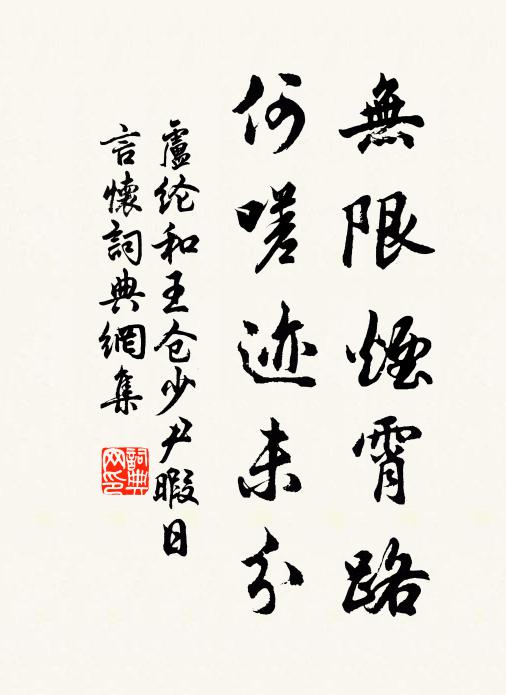 無限煙霄路
何嗟迹未分
盧纶和王仓少尹暇日
言懷詞典網集
詞典网印